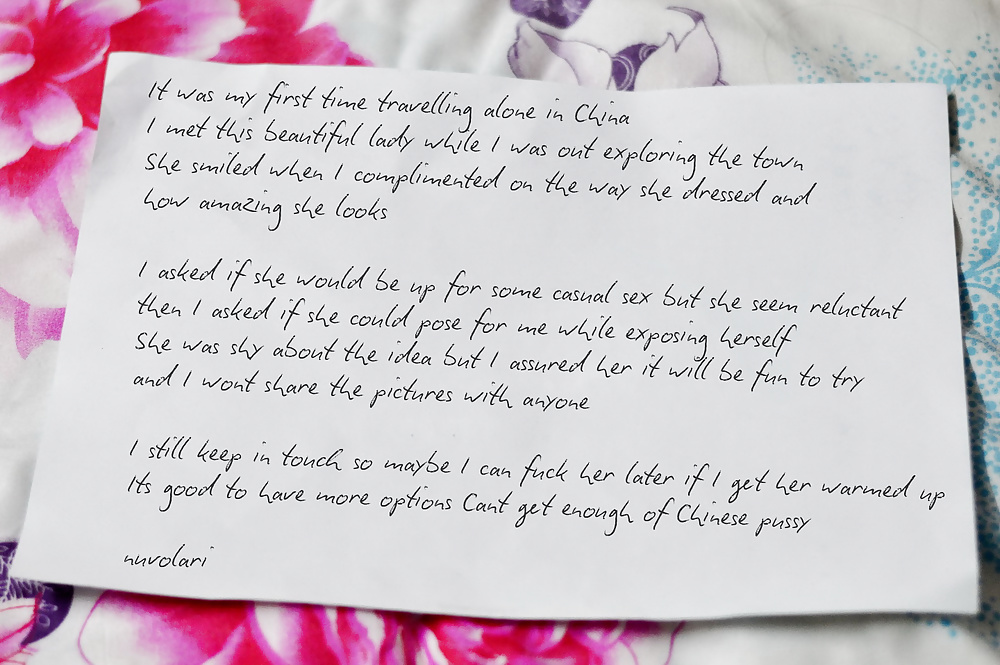 It was my first time travelling alone in China
I met this beautiful lady while I was out exploring the town
She smiled when I complimented on the way she dressed and
how amazing she looks
I asked if she would be up for some casual sex but she seem reluctant
then I asked if she could pose for me while exposing herself
She was shy about the idea but I assured her it will be fun to try
and I wont share the pictures with anyone
I still keep in touch so maybe I can fuck her later if I get her warmed up
Its good to have more options Cant get enough of Chinese pussy
nuvolari